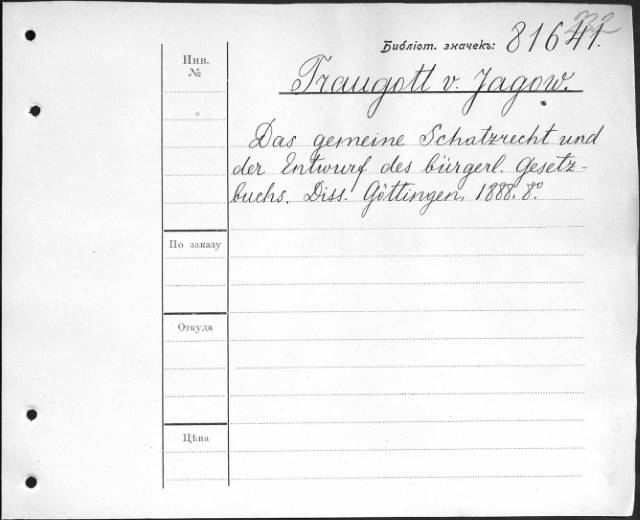 232
Библіот. значекъ: 81641.
Инв.
№
Traugott v. Jagow.
Das gemeine Schatzrecht und
der Entwurf des bürgerl. Gesetz-
buchs. Diss. Göttingen, 1888. 8°.
По заказу
Откуда
Цѣна